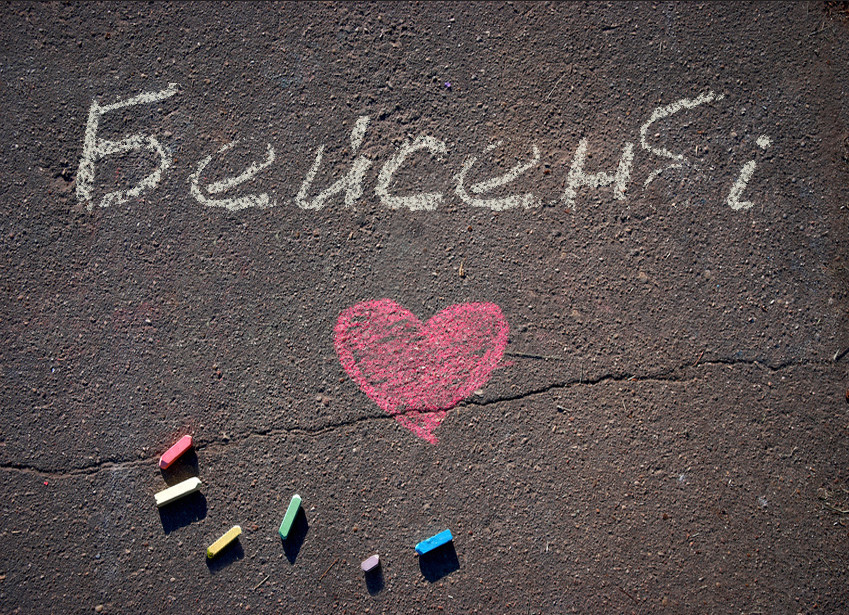 Бейсенбі